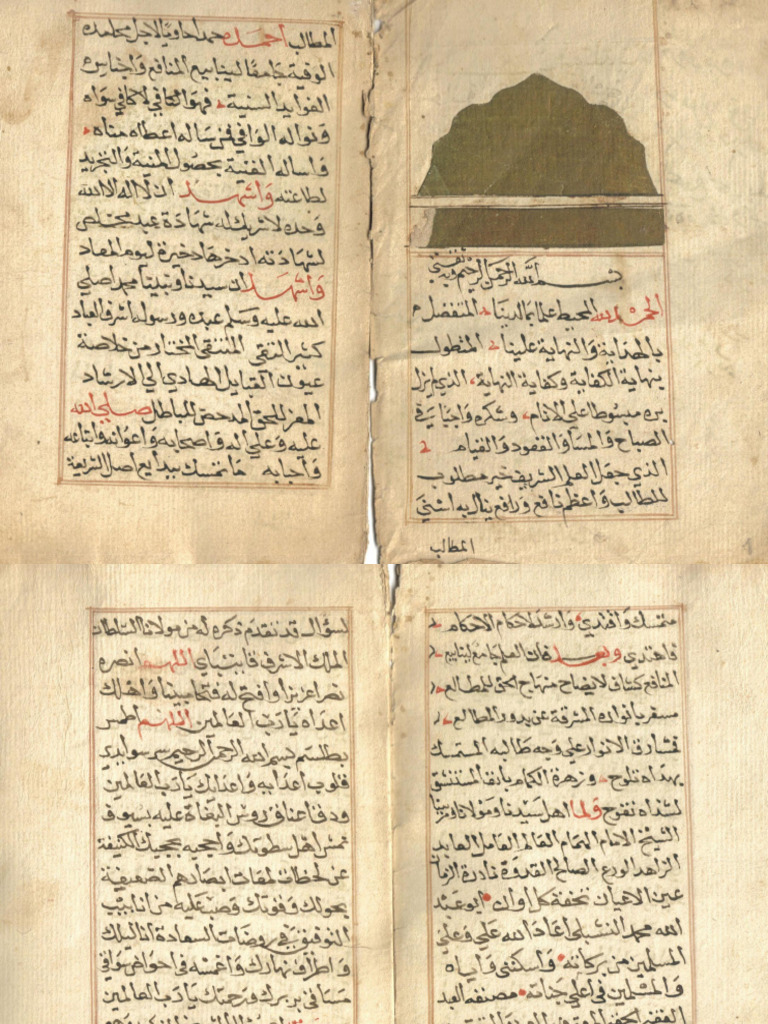 بسم الله الرحمن الرحيم وبه ثقتي
الحمد لله المحيط علما بما لدينا المتفضل
بالهداية والنهاية علينا المتطول
بنهاية الكفاية وكفاية النهاية الذي لم يزل
بره مبسوطا علي الانام وشكره واجبا في
الصباح والمسا والقعود والقيام
الذي جعل العلم الشريف خير مطلوب
للطالب واعظم نافع ورافع ينال به اسني
المطالب
المطالب احمده حمدا حاويا لاجل محامده
الوفية جامعا لينابيع المنافع واجناس
الفوايد السنية فهو الكافي لا كافي سواه
ونواله الوافي فمن ساله اعطاه مناه
واساله الغنية بحصول المنية والتجريد
لطاعته واشهد ان لا اله الا الله
وحده لا شريك له شهادة عبد مخلص
لشهادته ادخرها ذخيرة ليوم المعاد
واشهد ان سيدنا ونبينا محمدا صلي
الله عليه وسلم عبده ورسوله اشرف العباد
كنز التقي المنتقي المختار من خلاصة
عيون القبايل الهادي الي الارشاد
المعز للمحق المدحض للباطل صلي الله
عليه وعلي اله واصحابه واعوانه واتباعه
واحبابه ما تمسك ببدايع اصل الشريعة
متمسك واقتدي وارشد لاحكام الاحكام
فاهتدي وبعد فان العلم جامع لينابيع
المنافع كشاف لايضاح منهاج الحق للمطالع
مسفر بانواره المشرقة عن بدور المطالع
فمشارق الانوار علي وجه طالبه المتمسك
بهداه تلوح وزهرة الكمام بانف المستنشق
لشذاه تفوح ولما اهل سيدنا ومولانا
الشيخ الامام الهمام العالم العامل العابد
الزاهد الورع الصالح القدوة نادرة الزمان
عين الاعيان تحفة كل اوان ابو عبد
الله محمد اعاد الله علي وعلي
المسلمين من بركاته واسكنني واياه
والمسلمين في اعلي جناته مصنفه العبد
الفقير
لسؤال قد تقدم ذكره له من مولانا السلطان
الملك الاشرف قايتباي اللهم انصره
نصرا عزيزا وافتح له فتحا مبينا واهلك
اعداه يا رب العالمين اللهم اطمس
بطلسم بسم الله الرحمن الرحيم سر سويداي
قلوب اعدايه واعدايك يا رب العالمين
ودق اعناق روس البغاة عليه بسيوف
اهل سطوتك واحجبه بحجبك الكثيفة
عن لحظات لمعات ابصارهم الضعيفة
بحولك وقوتك وصب عليه من انابيب
التوفيق في روضات السعادة انا ليلك
واطراف نهارك واغمسه في احواض سواقي
مساقي بر برك ورحمتك يا رب العالمين